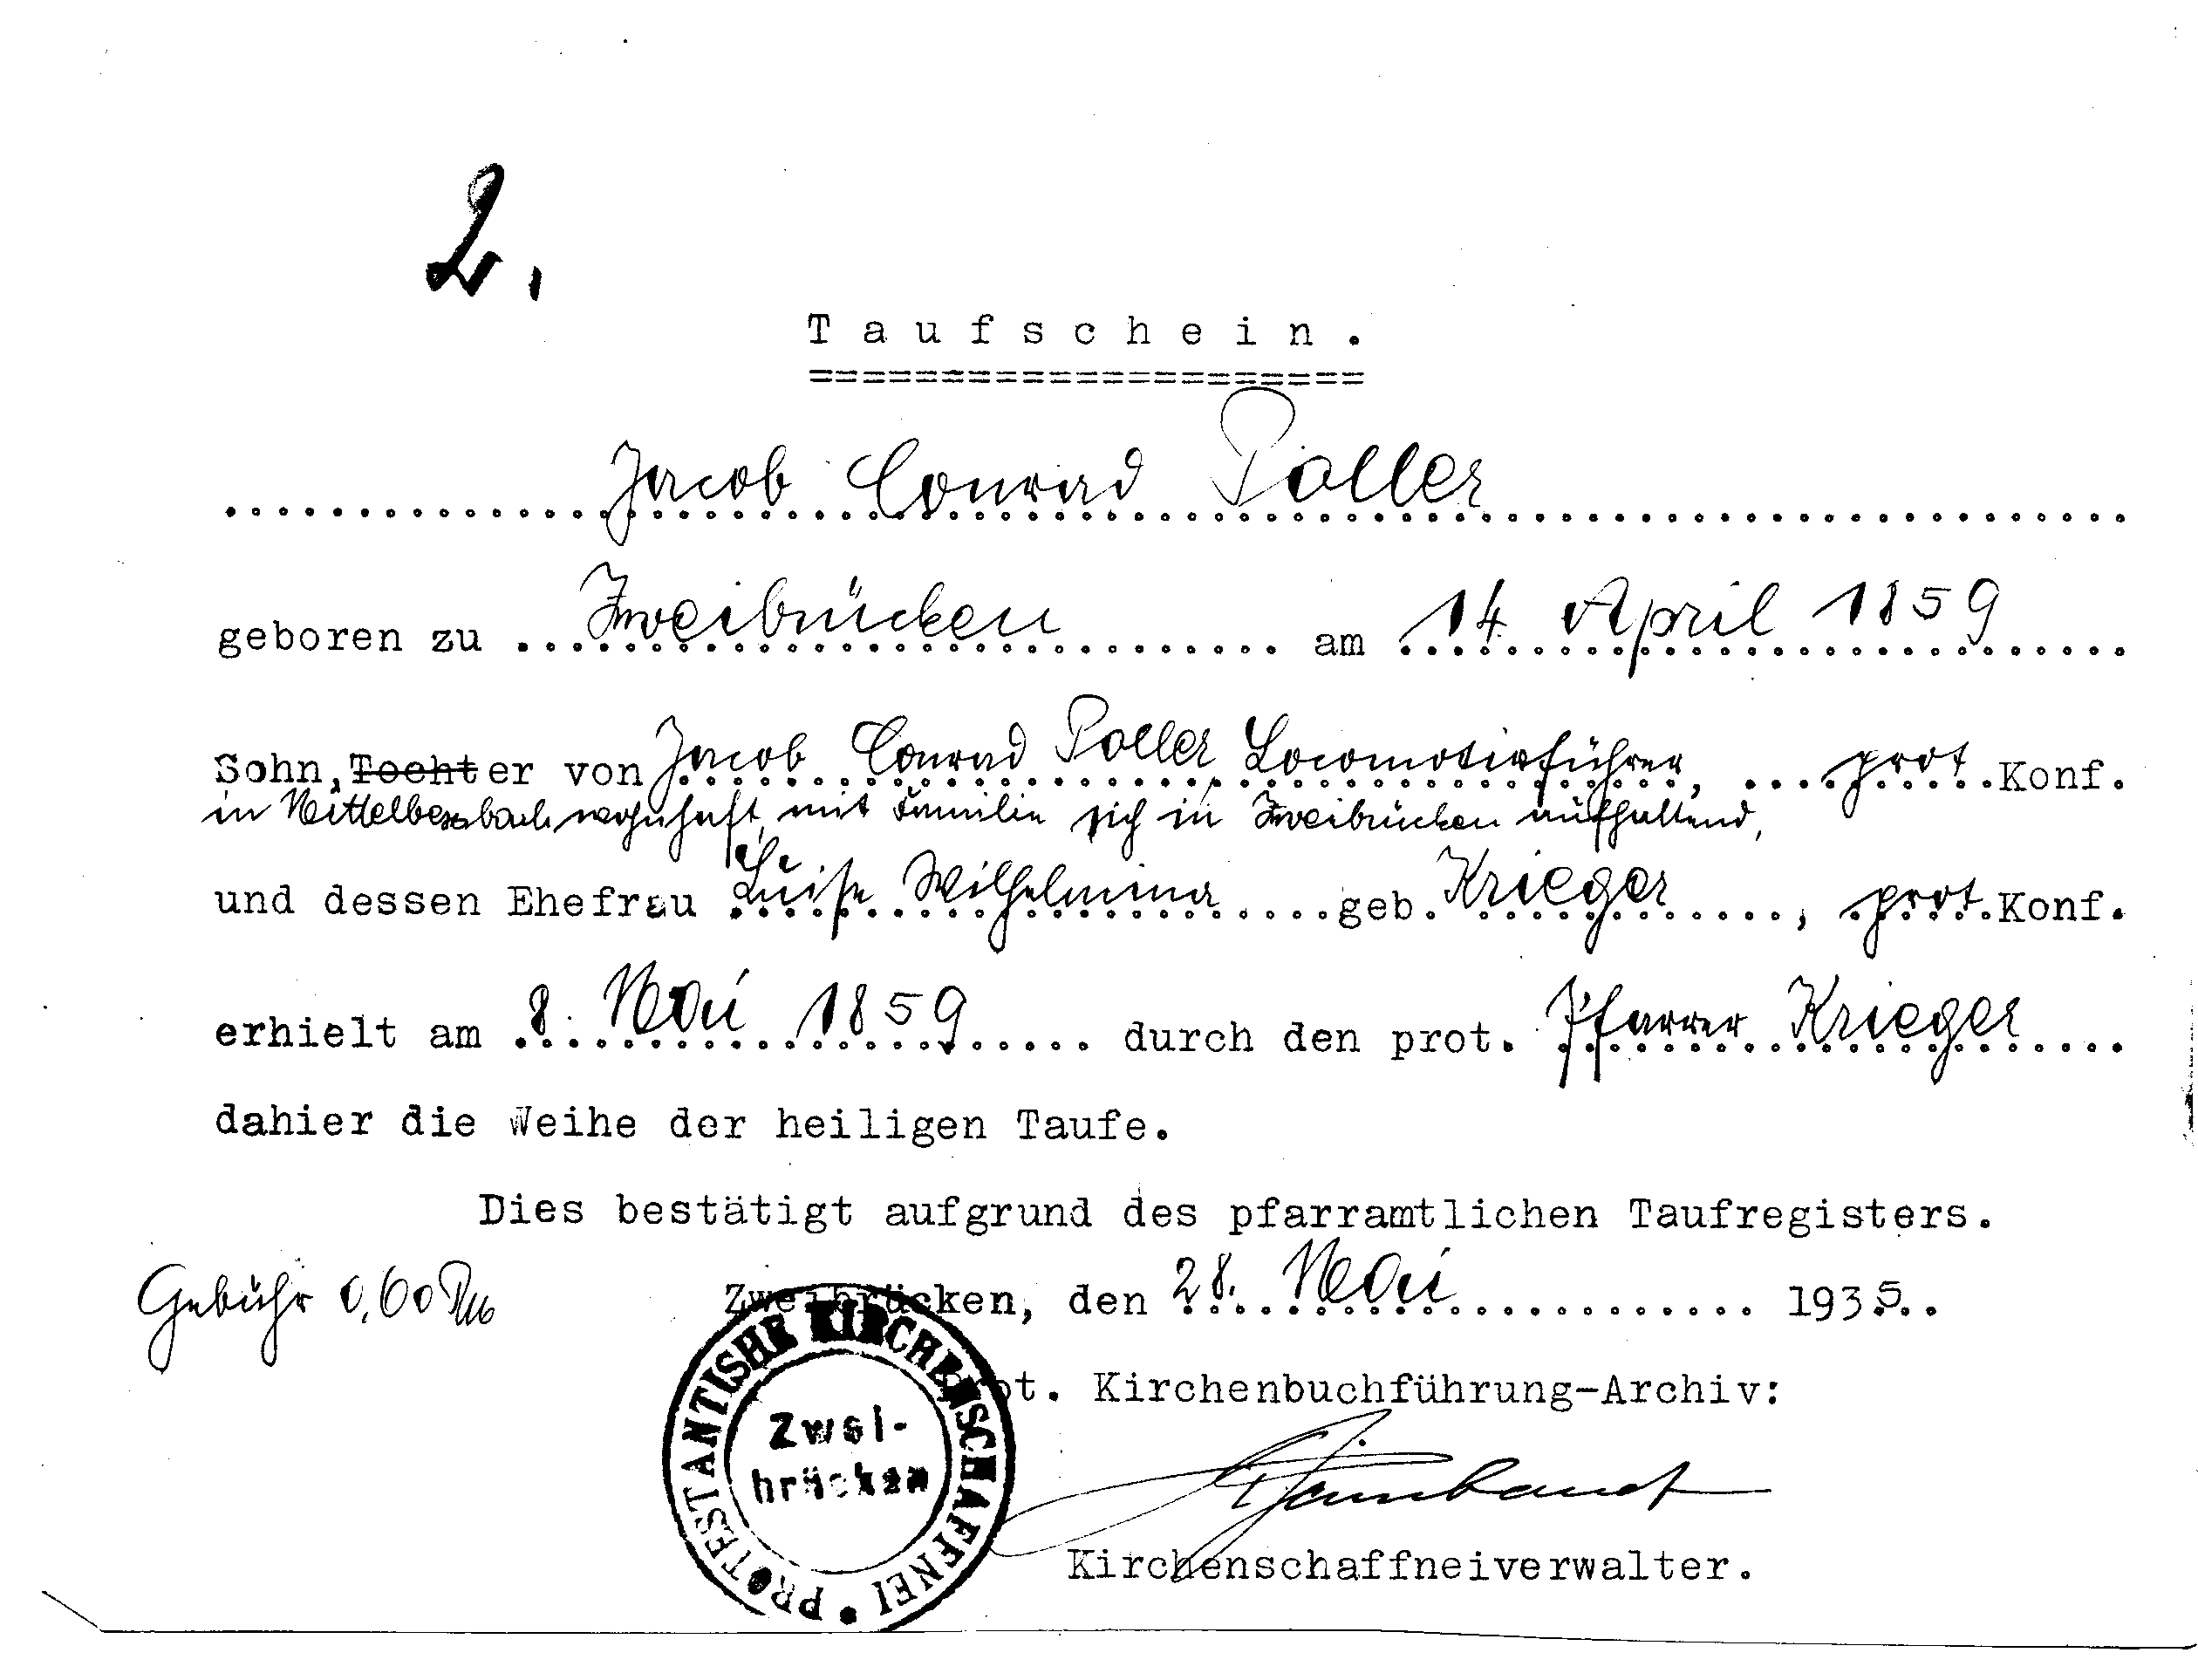 2.
Taufschein.
=====================
Jacob Conrad Poller
geboren zu Zweibrücken am 14. April 1859
Sohn, Tochter von Jacob Conrad Poller, Locomotivführer, prot. Konf.
in Mittelbexbach wohnhaft, mit Familie sich in Zweibrücken aufhaltend,
und dessen Ehefrau Luise Wilhelmina geb. Krieger, prot. Konf.
erhielt am 8. Mai 1859 durch den prot. Pfarrer Krieger
dahier die Weihe der heiligen Taufe.
Dies bestätigt aufgrund des pfarramtlichen Taufregisters.
Gebühr 0,60 Rm
Zweibrücken, den 28. Mai 1935.
Prot. Kirchenbuchführung-Archiv:
Kirchenschaffneiverwalter.
PROTESTANTISHE KIRCHENSCHAFFNEI
Zwei-
brücken